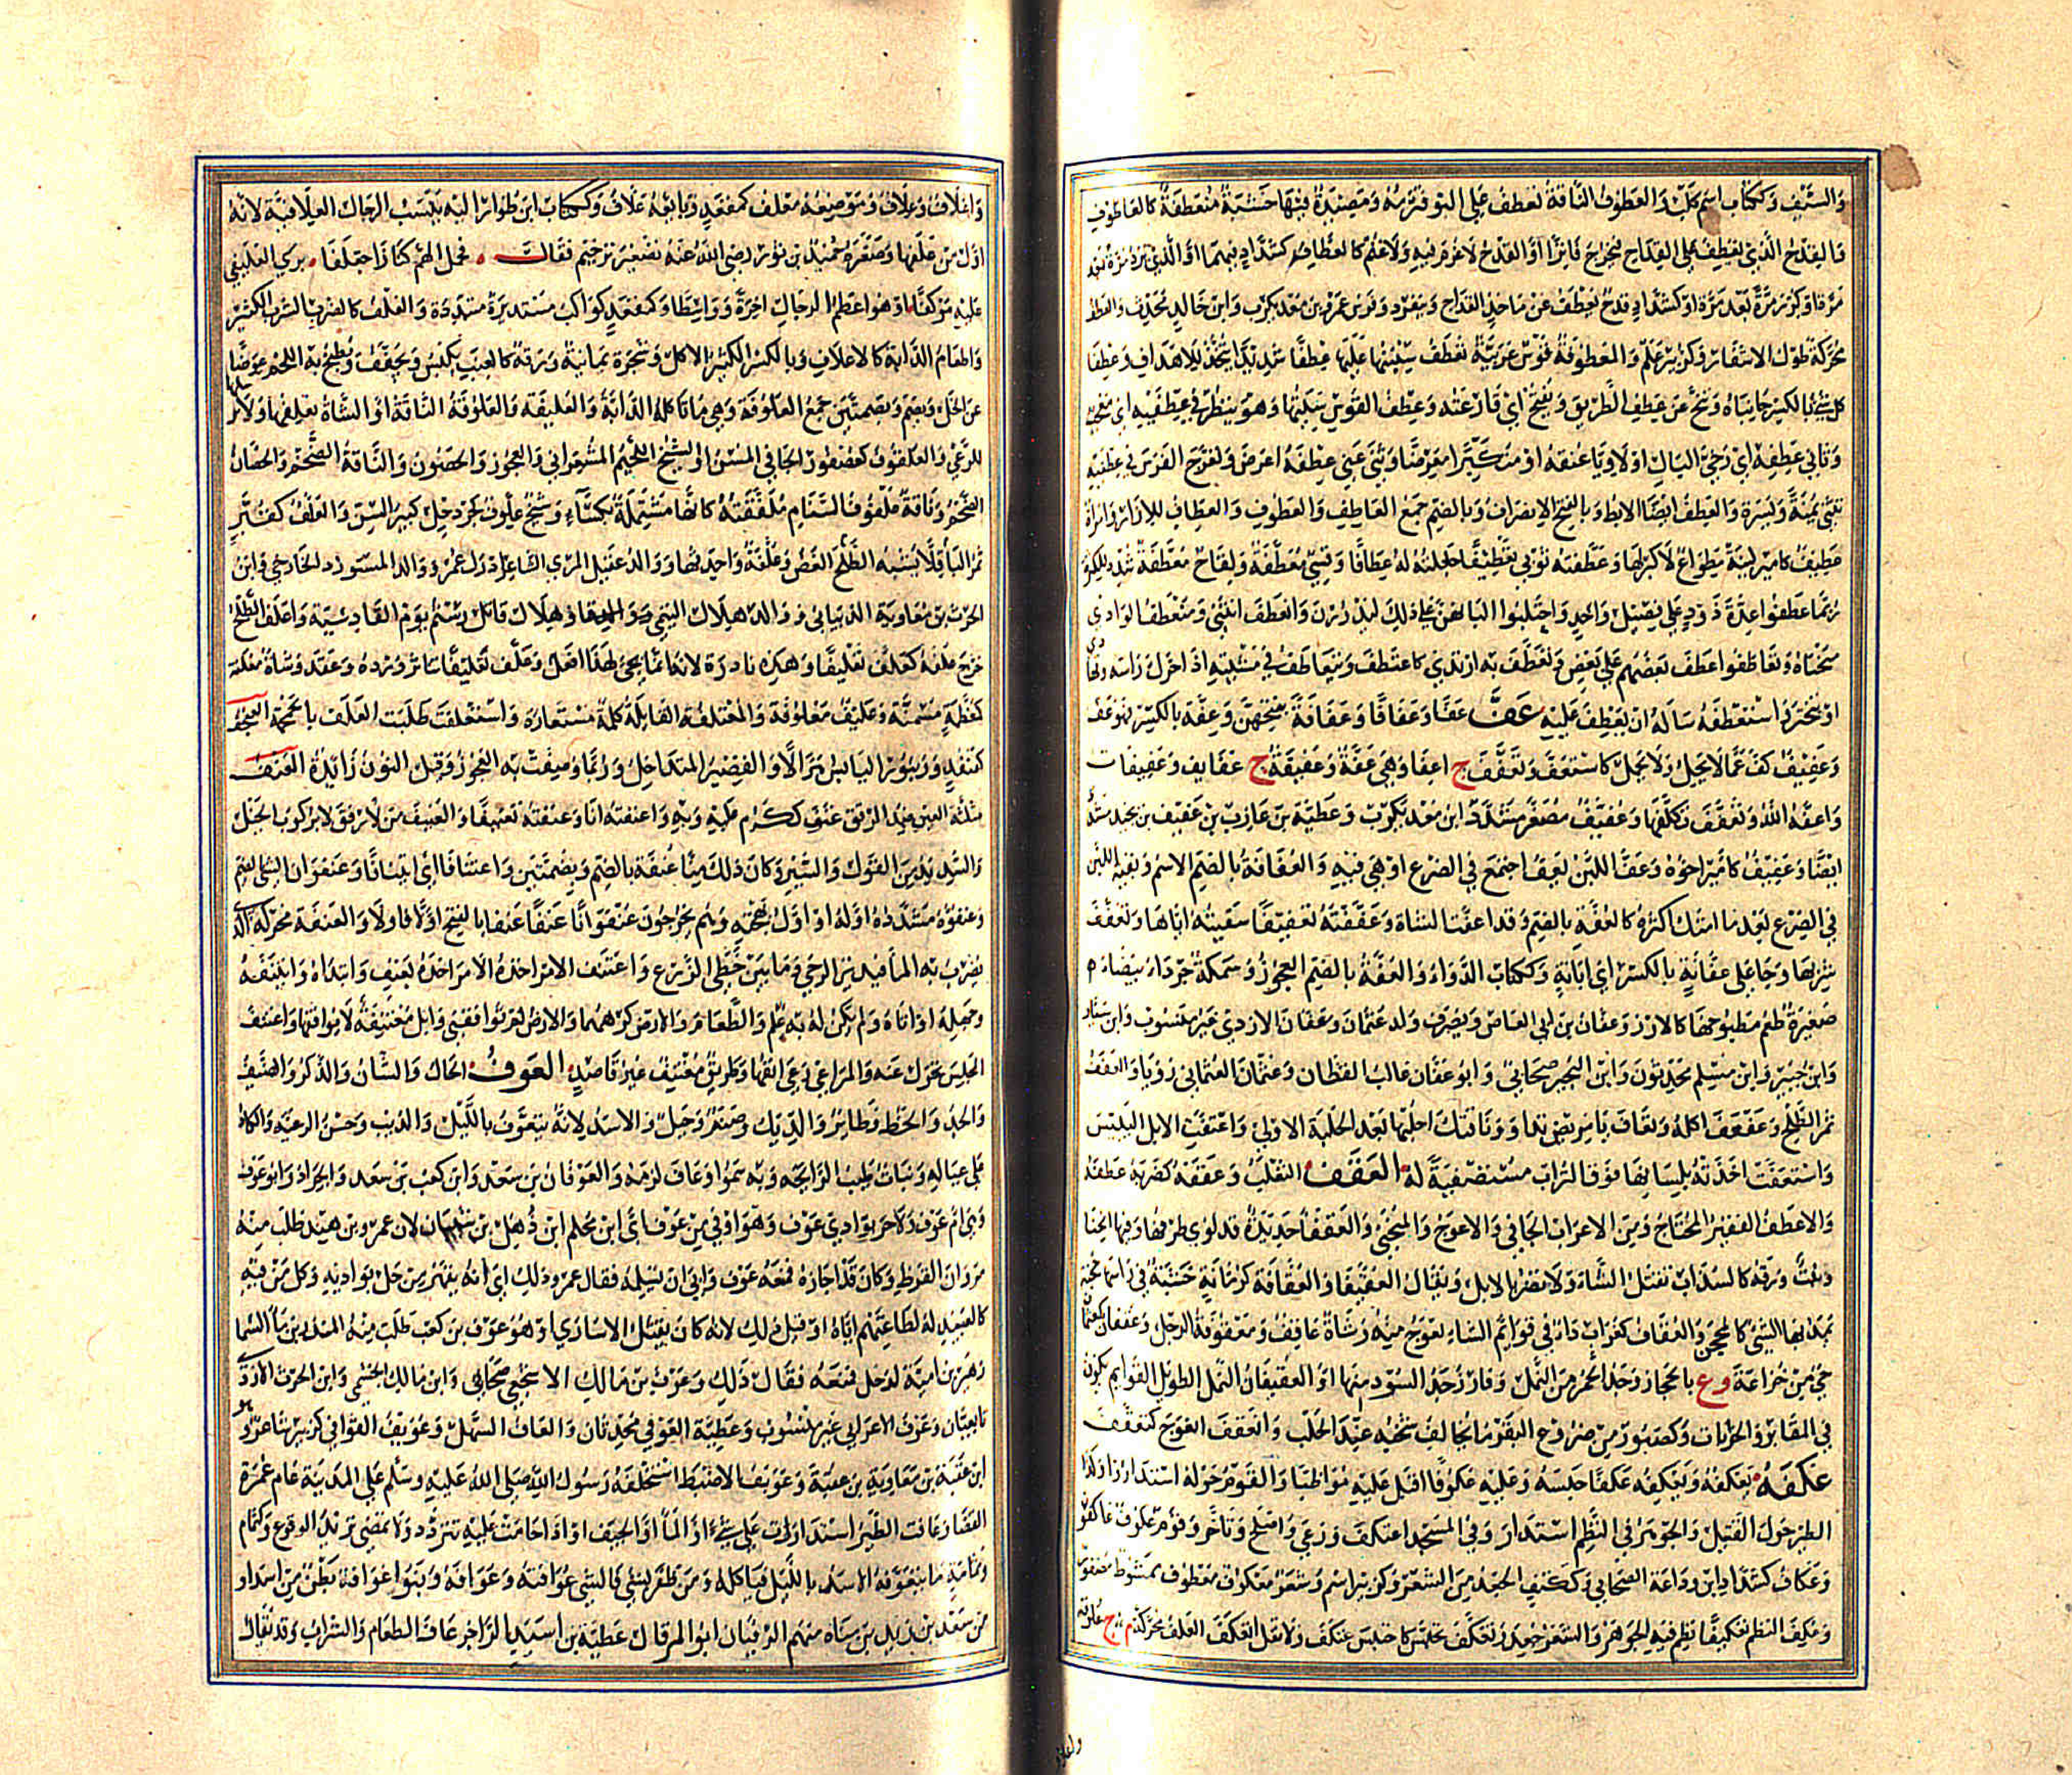 والسيف وككتاب اسم كلب والعطوف الناقة تعطف على البو فترأمه ومصيدة فيها خشبة منعطفة كالعاطوف
والقدح الذي يعطف على القداح فيخرج فائزا او القدح لا غرم فيه ولا غنم كالعطاف كشداد فيهما او الذي يرد مرة بعد
مرة او كرر مرة بعد مرة او كشداد قدح يعطف عن ماخذ القداح وينفرد وفرس عمرو بن معديكرب وابن خالد محدث والعطف
محركة طول الاشفار وكزبير علم والمعطوفة قوس عربية تعطف سيتها عليها عطفا شديدا تتخذ للاهداف وعطفا
كل شيء بالكسر جانباه وتنح عن عطف الطريق ويفتح اي قارعته وعطف القوس سيتها وهو ينظر في عطفيه اي معجب
وثاني عطفه اي رخي البال او لاويا عنقه او متكبرا معرضا وثنى عني عطفه اعرض وتعوج الفرس في عطفيه
تثنى يمنة ويسرة والعطف ايضا الابط وبالفتح الانصراف وبالضم جمع العاطف والعطوف والعطاف للازار وامراة
عطيف كامير لينة مطواع لا كبر لها وعطفته ثوبي تعطيفا جعلته له عطافا وقسي معطفة ولقاح معطفة شدد للكثرة
ربما عطفوا عدة ذود على فصيل واحد واحتلبوا البانهن على ذلك ليدررن وانعطف انثنى ومنعطف الوادي
منحناه وتعاطفوا عطف بعضهم على بعض وتعطف به ارتدى كاعتطف ويتعاطف في مشيته اذا حرك راسه وتهادى
او تبختر واستعطفه ساله ان يعطف عليه عف عفا وعفافا وعفافة بفتحهن وعفة بالكسر فهو عف
وعفيف كف عما لا يحل ولا يجمل كاستعف وتعفف ج اعفا وهي عفة وعفيفة ج عفايف وعفيفات
واعفه الله وتعفف تكلفها وعفيف مصغر مشدد ابن معديكرب وعطية بن عازب بن عفيف بن بخيد مشدد
ايضا وعفيف كامير اخوه وعف اللبن يعف اجتمع في الضرع او هي فيه والعفافة بالضم الاسم وبقية اللبن
في الضرع بعد ما امتك اكثره كالعفة بالضم وقد اعفت الشاة وعففته تعفيفا سقيته اياها وتعفف
شربها وجا على عفانه بالكسر اي ابانه وككتاب الدواء والعفة بالضم العجوز وسمكة جرداء بيضاء
صغيرة طعم مطبوخها كالارز وعفان بن ابي العاص ويصرف ولد عثمان وعفان الازدي غير منسوب وابن سيار
وابن جبير وابن مسلم محدثون وابن البجير صحابي وابو عفان غالب القطان وعثمان العثماني رويا والعفعف
ثمر الطلح وعفعف اكله وتعاف يا مريض تداو وناقتك احلبها بعد الحلبة الاولى واعتفت الابل اليبيس
واستعفت اخذته بلسانها فوق التراب مستصفية له العقف الثعلب وعقفه كضربه عطفه
والاعقف الفقير المحتاج ومن الاعراب الجافي والاعوج والمنحني والعقفا حديدة قد لوي طرفها وفيها انحنا
ونبت ورقه كالسذاب تقتل الشاء ولا تضر بالابل ويقال العقيفا والعقافة كرمانة خشبة في راسها حجنة
يمد بها الشيء كالمحجن والعقاف كغراب داء في قوائم الشاء تعوج منه وشاة عاقف ومعقوفة الرجل وعقفان كعثمان
حي من خزاعة وع بالحجاز وجد الحمر من النمل وفارز جد السود منها او العقيفان النمل الطويل القوايم يكون
في المقابر والخرابات وكصبور من ضروع البقر ما يخالف شخبه عند الحلب وانعقف انعوج كتعقف
عكفه يعكفه ويعكفه عكفا حبسه وعليه عكوفا اقبل عليه مواظبا والقوم حوله استداروا وكذا
الطير حول القتيل والجوهر في النظم استدار وفي المسجد اعتكف ورعى واصلح وتاخر وقوم عكوف عاكفون
وعكاف كشداد ابن وداعة الصحابي وككتف الجعد من الشعر وكزبير اسم وشعر معكوف معطوف ممشوط مضفور
وعكف النظم تعكيفا نظم فيه الجوهر والشعر جعد وتعكف تحبس كاحتبس عتكف ولا تقل انعكف العلف محركة م ج علوفة
واعلاف وعلاف وموضعه معلف كمقعد وبائعه علاف وككتاب ابن طوار اليه ينسب الرحال العلافية لانه
اول من عملها وصغره حميد بن ثور رضي الله عنه تصغير ترخيم فقال فحمل الهم كنازا جلعفا يرى العليفي
عليه موكفا او هو اعظم الرحال اخرة وواسطا وكمقعد كواكب مستديرة متبددة والعلف كالضرب الشرب الكثير
واطعام الدابة كالاعلاف وبالكسر الكثير الاكل وشجرة يمانية ورقه كالعنب يكبس ويجفف ويطبخ به اللحم عوضا
عن الخل ويضم وبضمتين جمع العلوفة وهي ما تاكله الدابة والعليفة والعلوفة الناقة او الشاة تعلفها ولا ترسلها
للرعي والعلفوف كعصفور الجافي المسن او الشيخ اللحيم المشعراني والعجوز والحصون والناقة الضخم والحصان
الضخم وناقة علفوف السنام ملففته كانها مشتملة بكساء وشيخ علوف كجردحل كبير السن والعلف كقبر
ثمر الطلح يشبه الباقلا الغض وعلفة واحدتها ووالد عقيل المري الشاعر ادرك عمر ووالد المستورد الخارجي وابن
الحرث بن معاوية الذبياني ووالد هلال التيمي وهلال قاتل رستم يوم القادسية واعلف الطلح
خرج علفه كعلف تعليفا وهذه نادرة لانه انما يجيء لهذا افعل وعلف تعليفا تناثر ورده وعقد وشاة معلفة
كمعظمة مسمنة وعليف معلوفة والمعتلفة القابلة كلمة مستعارة واستعلفت طلبت العلف بالحمحمة العنجف
كقنفذ وزنبور اليابس هزالا والقصير المتداخل وربما وصفت به العجوز وقيل النون زائدة العنف
مثلثة العين ضد الرفق عنف ككرم عليه وبه واعنفته انا وعنفته تعنيفا والعنيف من لا رفق له بركوب الخيل
والشديد من القول والسير وكان ذلك منا عنفة بالضم وبضمتين واعتنافا اي ائتنافا وعنفوان الشيء بالضم
وعنفوه مشددة اوله او اول بهجته وهم يخرجون عنفوانا عنفا عنفا بالفتح اولا فاولا والعنفة محركة الذي
يضربه الماء فيدير الرحى وما بين خطي الزرع واعتنف الامر اخذه الامر اخذه بعنف وابتداه وائتنفه
وجهله او اتاه ولم يكن له به علم والطعام والارض كرههما والارض لم توافقني وابل معتنفة لا يوافقها واعتنف
المجلس تحول عنه والمراعي رعى انفها وطريق معتنف غير قاصد العوف الحال والشان والذكر والضيف
والجد والحظ وطائر والديك وصنم وجبل والاسد لانه يتعوف بالليل والذيب وحسن الرعية والكاد
على عياله ونبات طيب الرايحة وبه سموا وعاف لزمه والعوفان بن سعد وابن كعب بن سعد والجراد وابو عوف
وهي ام عوف ولا حر بوادي عوف وهو اوفى من عوف اي ابن محلم ابن ذهل بن شيبان لان عمرو بن هند طلب منه
مروان القرظ وكان قد اجاره فمنعه عوف وابى ان يسلمه فقال عمرو ذلك اي انه يقهر من حل بواديه وكل من فيه
كالعبيد له لطاعتهم اياه او قيل ذلك لانه كان يقتل الاسارى او هو عوف بن كعب طلب منه المنذر بن ماء السما
زهير بن امية لذحل فمنعه فقال ذلك وعوف بن مالك الاشجعي صحابي وابن مالك الجشمي وابن الحرث الازدي
تابعيان وعوف الاعرابي غير منسوب وعطية العوفي محدثان والعاف السهل وعويف القوافي كزبير شاعر وهو
ابن عقبة بن معاوية بن عقبة وعويف الاضبط استخلفه رسول الله صلى الله عليه وسلم على المدينة عام عمرة
القضا وعافت الطير استدارت على شيء او الماء او الجيف او اذا حامت عليه تتردد ولا تمضي تريد الوقوع وكثمام
وثمامة ما يتعوفه الاسد بالليل فياكله ومن ظفر بشيء فالشيء عوافته وعوافه وبنو عوافة بطن من اسد او
من سعد بن زيد بن مناه منهم الزفيان ابو المرقال عطية بن اسيد الراجز عاف الطعام والشراب وقد يقال